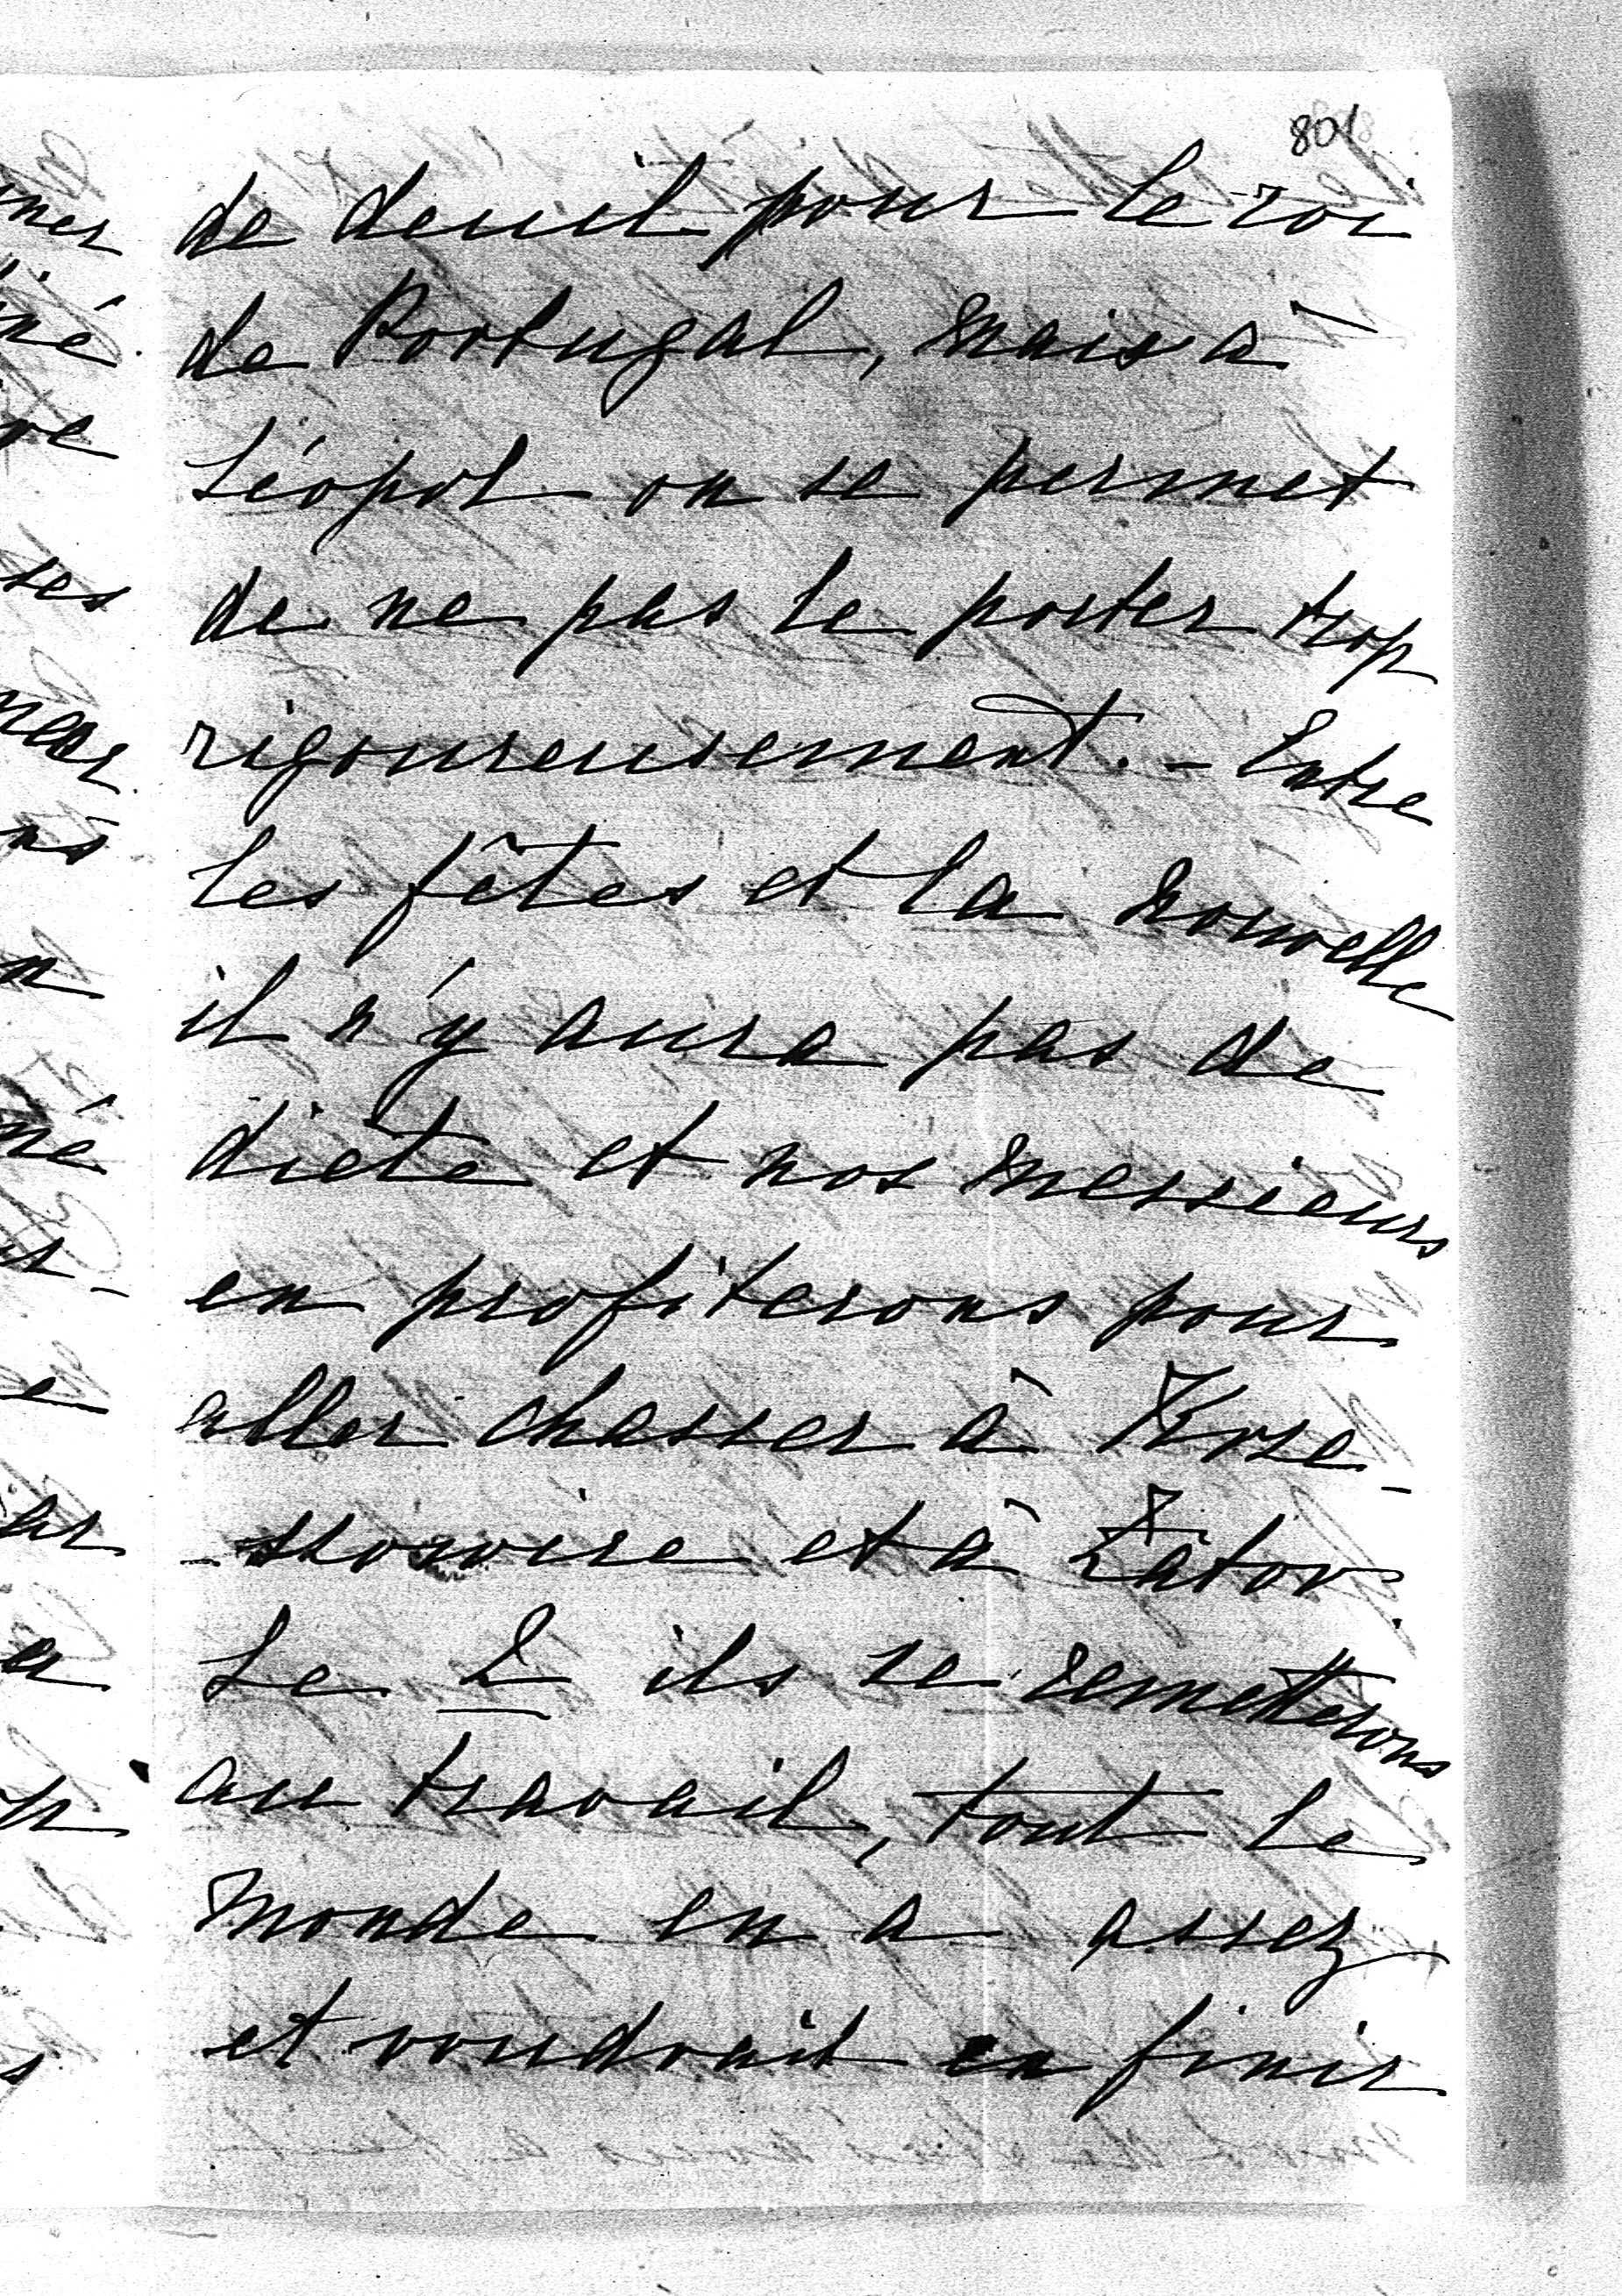 801
de deuil pour le roi
de Portugal, mais à
Léopol on se permet
de ne pas le porter trop
rigoureusement. - Entre
les fêtes et la nouvelle
il n'y aura pas de
diète et nos messieurs
en profiterons pour
aller chasser à
et à Zator.
Le 2 ils se remetterons
au travail, tout le
monde en a assez
et voudrait en finir